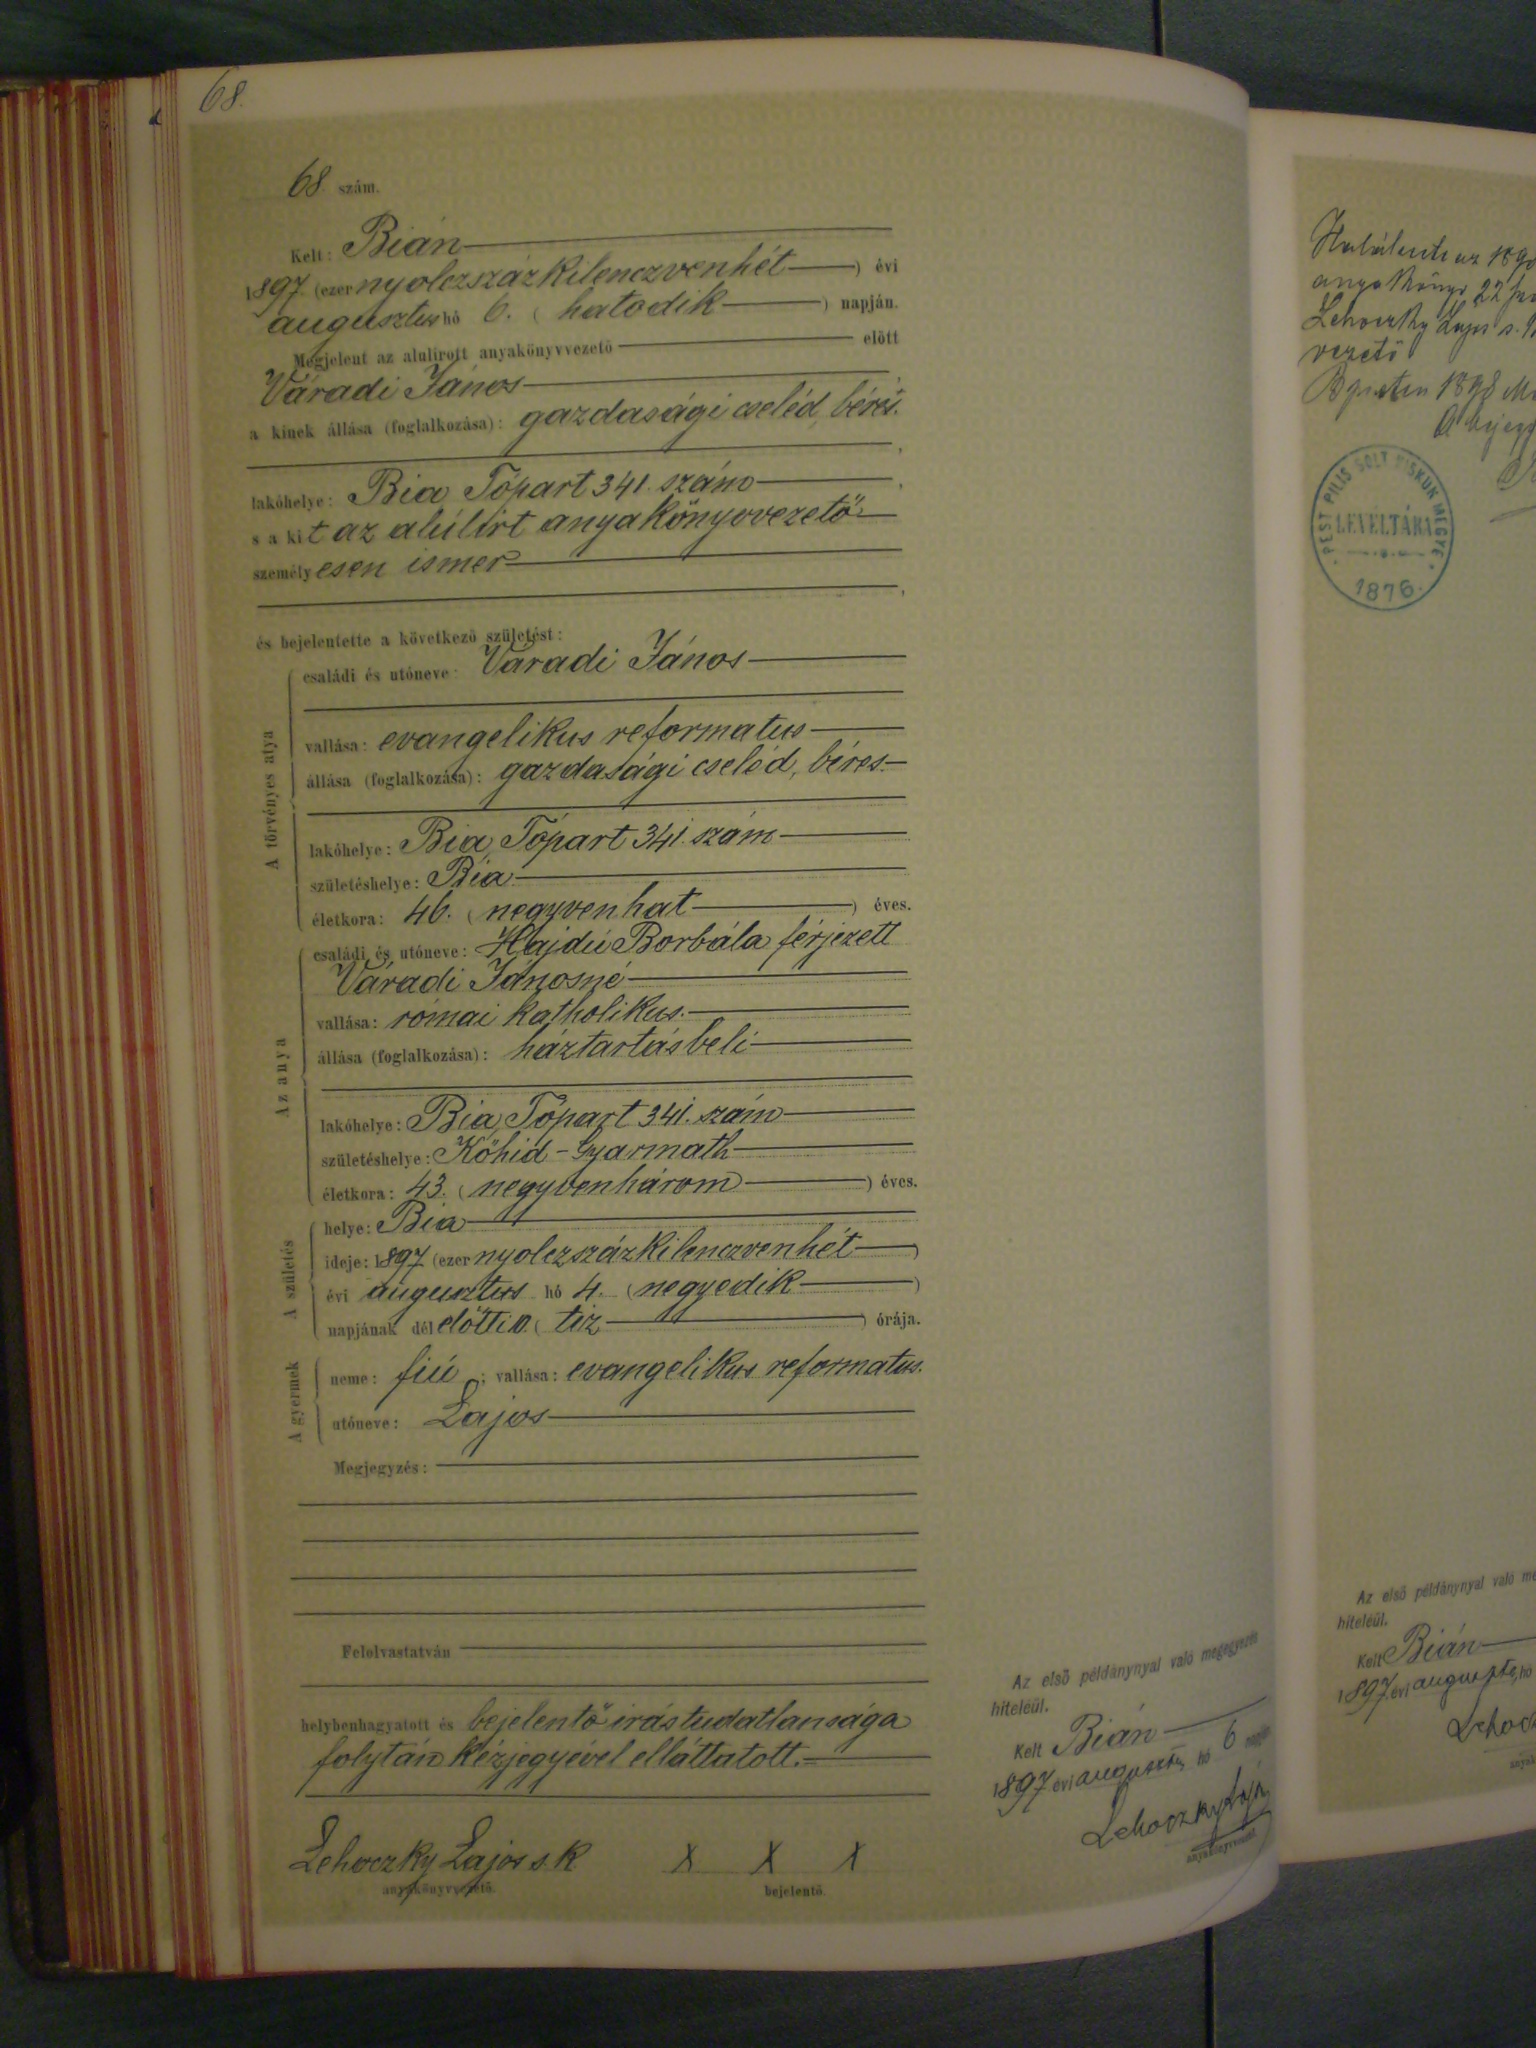 68.
68. szám.
Kelt: Bián
1897 (ezernyolczszázkilenczvenhét) évi
augusztus hó 6. (hatodik) napján.
Megjelent az alulirott anyakönyvvezető előtt
Váradi János,
a kinek állása (foglalkozása): gazdasági cseléd, béres.
,
lakóhelye: Bia Tópart 341. szám,
s a kit az alúlírt anyakönyvvezető
személyesen ismer
,
és bejelentette a következő születést:
A törvényes atya
családi és utóneve: Váradi János
vallása: evangelikus reformatus
állása (foglalkozása): gazdasági cseléd, béres.
lakóhelye: Bia, Tópart 341. szám
születéshelye: Bia
életkora: 46. (negyvenhat) éves.
Az anya
családi és utóneve: Hajdú Borbála férjezett
Váradi Jánosné
vallása: római katholikus.
állása (foglalkozása): háztartásbeli
lakóhelye: Bia, Tópart 341. szám
születéshelye: Kőhid-Gyarmath
életkora: 43. (negyvenhárom) éves.
A születés
helye: Bia
ideje: 1897 (ezernyolczszázkilenczvenhét)
évi augusztus hó 4. (negyedik)
napjának délelőtti 10. (tiz) órája.
A gyermek
neme: fiú; vallása: evangelikus reformatus.
utóneve: Lajos
Megjegyzés:
Felolvastatván
helybenhagyatott és bejelentő irástudatlansága
folytán kézjegyével elláttatott.
Lehoczky Lajos s. k X X X
anyakönyvvezető. bejelentő.
Az első példánynyal való megegyezés
hiteléül.
Kelt Bián
1897 évi auguszt. hó 6 napján
Lehoczky Lajos
anyakönyvvezető
1898
anyakönyv 22
Lehoczky Lajos s.
vezető
1898
A bejegy
PEST PILIS SOLT KISKUN MEGYE
LEVÉLTÁRA
1876.
Az első példánynyal való me
hiteléül.
Kelt Bián
1897 évi auguszt. hó
Lehocz
anyak